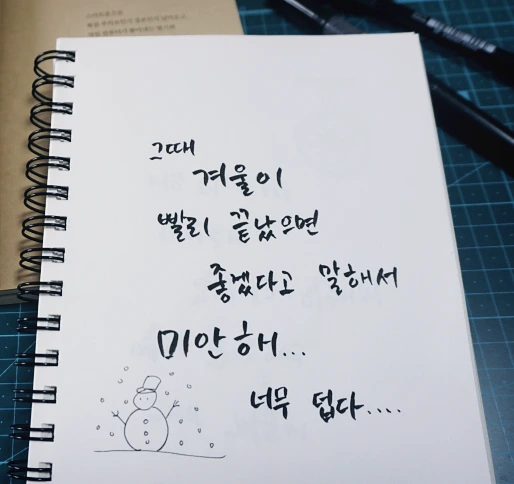 그때
겨울이
빨리 끝났으면
좋겠다고 말해서
미안해...
너무 덥다....